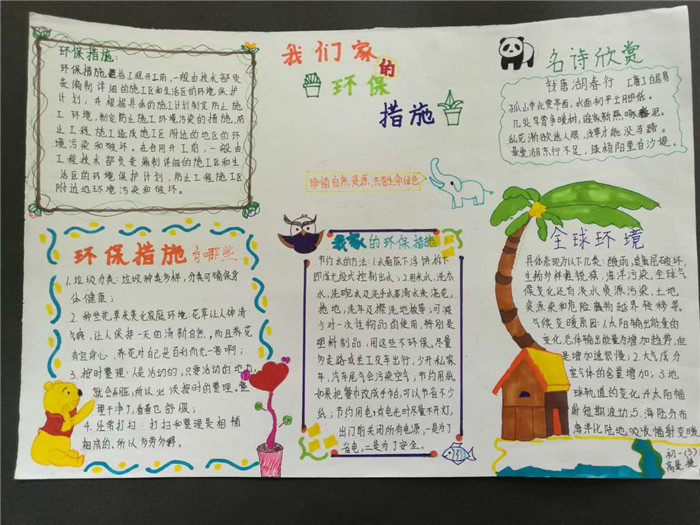 环保措施：
环保措施是指工程开工前，一般由技术部负
责编制详细的施工区和生活区的环境保护
计划，并根据具体的施工计划制定防止施
工环境，制定防止施工环境污染的措施，防
止工程施工造成施工区附近的地区的环
境污染和破坏。在合同开工前，一般由
工程技术部负责编制详细的施工区和生
活区的环境保护计划，防止工程施工区
附近地环境污染和破坏。
我们家的
环保
措施
珍惜自然资源，共营生命绿色
名诗欣赏
钱唐湖春行 (唐)白居易
孤山寺北贾亭西，水面初平云脚低。
几处早莺争暖树，谁家新燕啄春泥。
乱花渐欲迷人眼，浅草才能没马蹄。
最爱湖东行不足，绿杨阴里白沙堤。
环保措施有哪些
1.垃圾分类：垃圾种类多样，分类可确保身
体健康；
2.种些花草来美化家庭环境：花草让人神清
气爽，让人保持一天的清新自然，而且养花
有益身心，养花对自己是百利而无一害啊；
3.按时整理：人是活动的，只要活动的地方
就会弄脏，所以必须按时的整理。整
理干净了，自看也舒服。
4.经常打扫：打扫和整理是相辅
相成的，所以多劳多得。
我家的环保措施
节约水的方法：1.水箱放下浮饼，按下
即停老抽式控制出水；2.用米水、洗衣
水、洗碗水及洗手水等清水来浇花，
拖地，洗车及擦洗地板等，可减
少对一次性物品的使用，特别是
塑料制品，用这些不环保。尽量
勿走路或坐工交车出行，少开私家
车，汽车尾气会污染空气，节约用纸
如果把警巾改成手帕，可以节省不少
纸；节约用电，有电光时尽量不开灯，
出门前关闭所有电源，一是为了
省电，二是为了安全。
全球环境
具体表现为以下几类：酸雨，臭氧层破坏，
生物多样性锐减，海洋污染，全球气
候变化还有淡水资源污染，土地
资源荒和危险废物越界转移等。
气候变暖原因：1.太阳输出能量的
变化，总体输出能量为增加趋势，但
是增加速很慢；2.大气成分
室气体的含量增加；3.地
球轨道的变化，4.太阳辐
射低期波动；5.海陆分布
海洋比陆地吸收辐射变暖
初一(3)